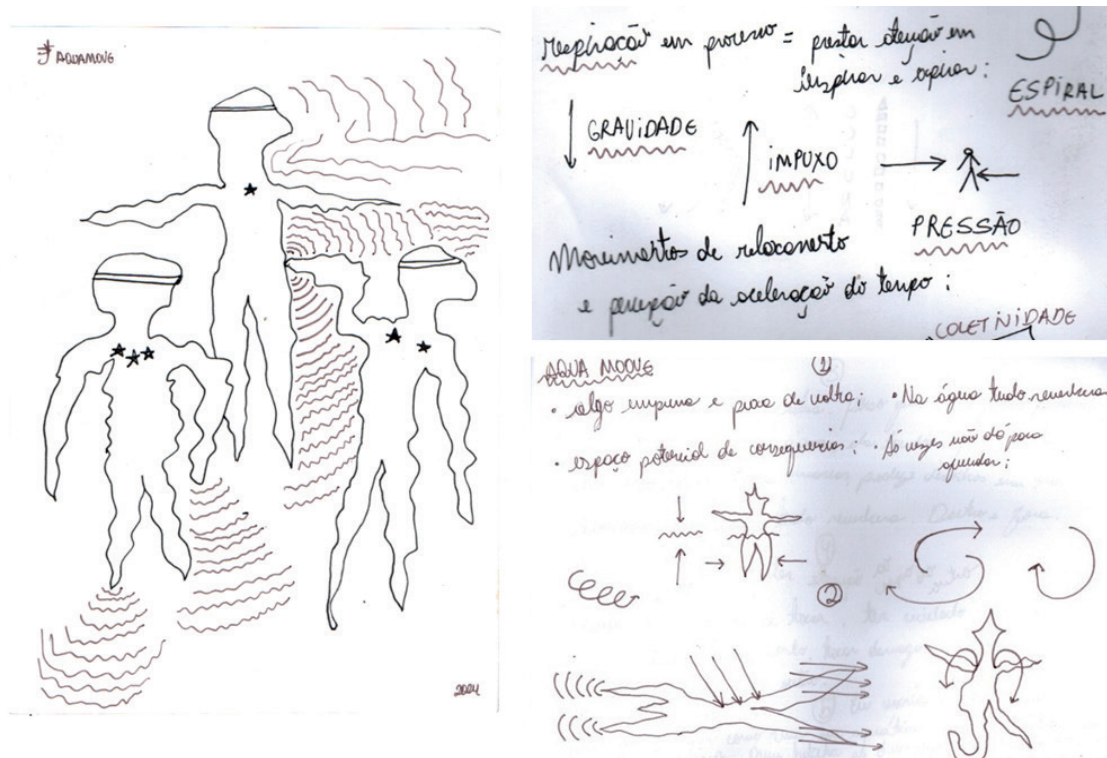 AQUAMOVE
2024
Respiração em processo = prestar atenção em
inspirar e expirar:
ESPIRAL
GRAVIDADE
IMPUXO
PRESSÃO
Movimentos de relaxamento
e percepção da aceleração do tempo:
COLETIVIDADE
AQUA MOOVE
1
• algo empurra e puxa de volta; • Na água tudo reverbera
• espaço potencial de consequências; • Às vezes não dá para
2